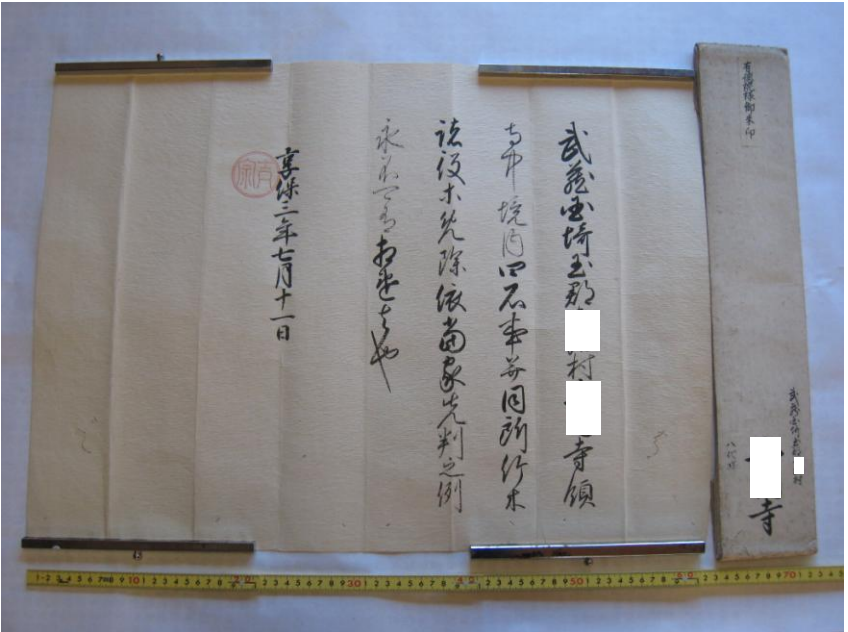 有徳院様御朱印
武蔵国埼玉郡村
寺
武蔵国埼玉郡村寺領
寺中境内四石事并同所竹木
諸役等免除依當家先判之例
永不可有相違者也
享保三年七月十一日
吉宗